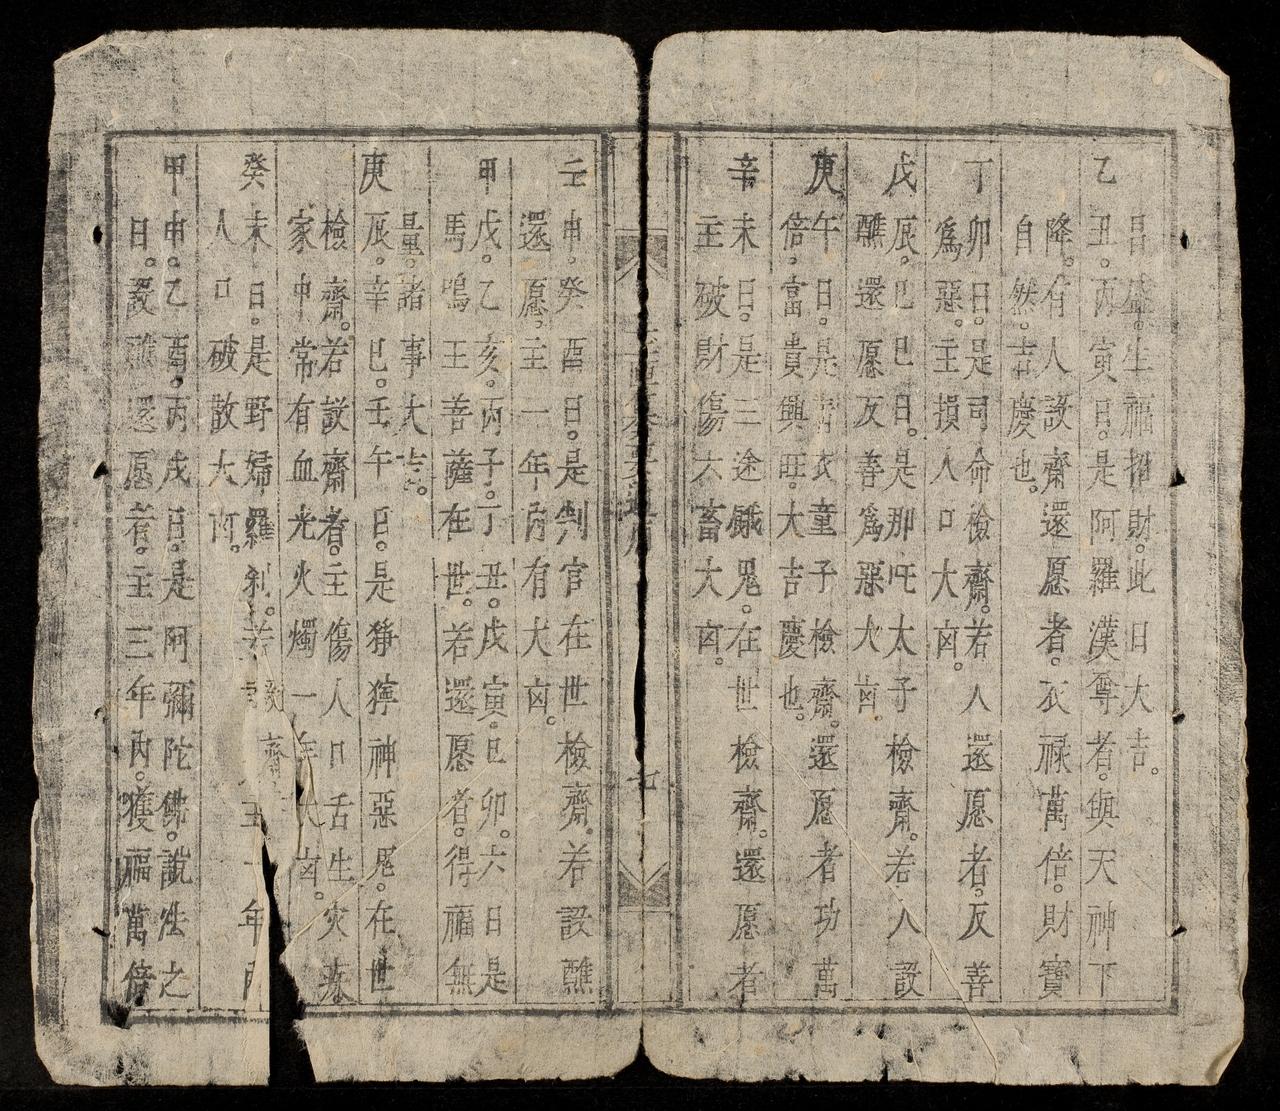 昌盛。生福招財。此日大吉。
乙丑。丙寅日。是阿羅漢尊者。與天神下
降。有人設齋還愿者。衣祿萬倍。財寶
自然。吉慶也。
丁卯日。是司命檢齋。若人還愿者。反善
為惡。主損人口大凶。
戊辰。己巳日。是那吒太子檢齋。若人設
醮還愿反善為惡大凶
庚午日。是青衣童子檢齋。還愿者功萬
倍。富貴興旺。大吉慶也。
辛未日。是三途餓鬼。在世檢齋。還愿者
主破財傷六畜大凶。
七
壬申。癸酉日。是判官在世檢齋。若設醮
還愿。主一年內有大凶。
甲戌。乙亥。丙子。丁丑。戊寅。己卯。六日是
馬鳴王善薩在世。若還愿者。得福無
量。諸事大吉。
庚辰。辛巳。壬午日。是猙獰神惡鬼。在世
檢齋。若設齋者。主傷人口舌生灾疾。
家中常有血光火燭一年大凶。
癸未日。是野婦羅刹。若設齋主一年內
人口破散大凶。
甲申。乙酉。丙戌日。是阿彌陀佛。說法之
日。設醮還愿者。主三年內。獲福萬倍